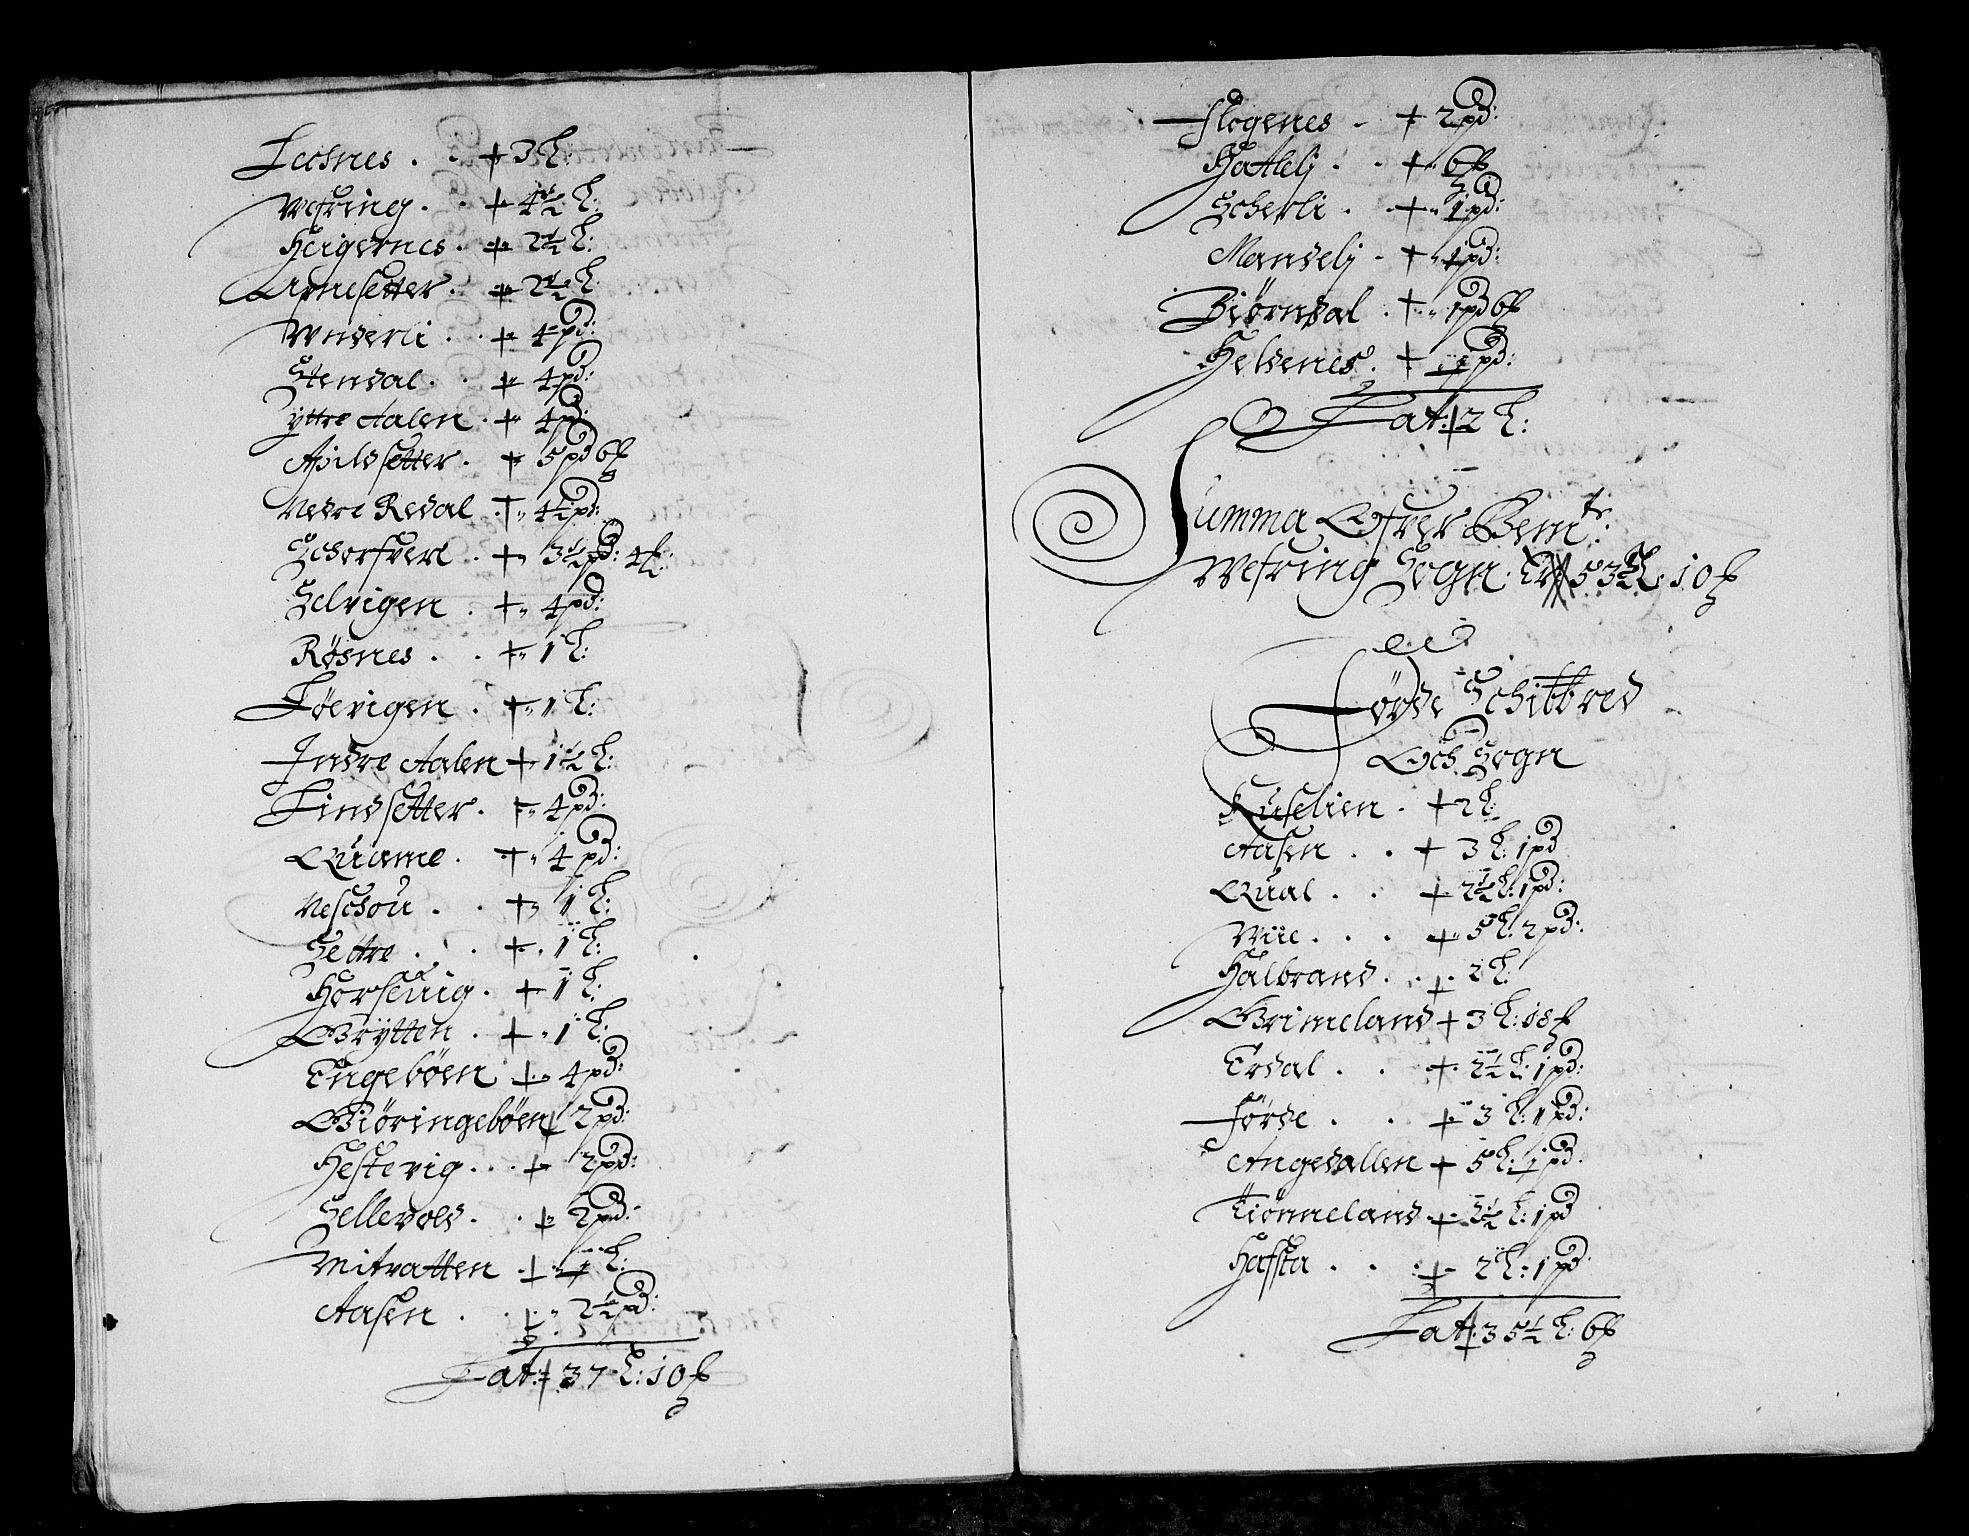 Leesnes . . + 3 L:
Wefring . . + 4½ L:
Heigernes . + 2½ L:
Arnesetter . + 2½ L:
Wnderli . . + 4 pd:
Stendal . . + 4 pd:
yttre Aalen . + 4 pd:
Apildsetter . + 5 pd 6 f
Nedre Redal . + 4½ pd:
Schorfven . + 3½ pd: 4 f:
Selvigen . + 4 pd:
Røsnes . . + 1 L:
Løevigen . + 1 L:
Indre Aalen + 1½ L:
Lindsetter . + 4 pd:
Quame . + 4 pd:
Neschou . . + 1 L:
Settre . . . + 1 L:
Horseuig . + 1 L:
Grÿtten . + 1 L:
Engebøen + 4 pd:
Giøringebøen + 2 pd:
Hestevig . . . + 2 pd:
Sellevold . . + 2 pd:
Mitvatten + 1 L:
Aasen . . + 2½ pd:
Lat: + 37 L: 10 f
Flogenes . + 2 pd:
Hatlelj . . + 6 f
Scherli . . + 1 pd:
Mandelj . + 1 pd:
Biørndal . + 1 pd 6 f
Heldenes . + 1 pd:
Lat: + 2 L:
Summa Ofver Bemte:
Wefring Sogn: Er 53½ L: 10 f
Førde Schibbred
Och Sogn
Kuselien . + 2 L:
Aasen . . + 3 L: 1 pd
Qual . . + 2½ L: 1 pd:
Wiie . . . + 5 L: 2 pd:
Halbrand . . + 2 L:
Grimeland + 3 L: 18 f
Erdal . . + 2½ L: 1 pd:
Førde . . + 3 L: 1 pd:
Angedallen + 5 L: 1 pd:
Tiønneland + 3½ L: 1 pd
Hafsta . . + 2 L: 1 pd
Lat: + 35½ L: 6 f